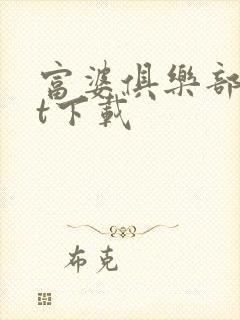 富婆俱樂部
t下載
布克